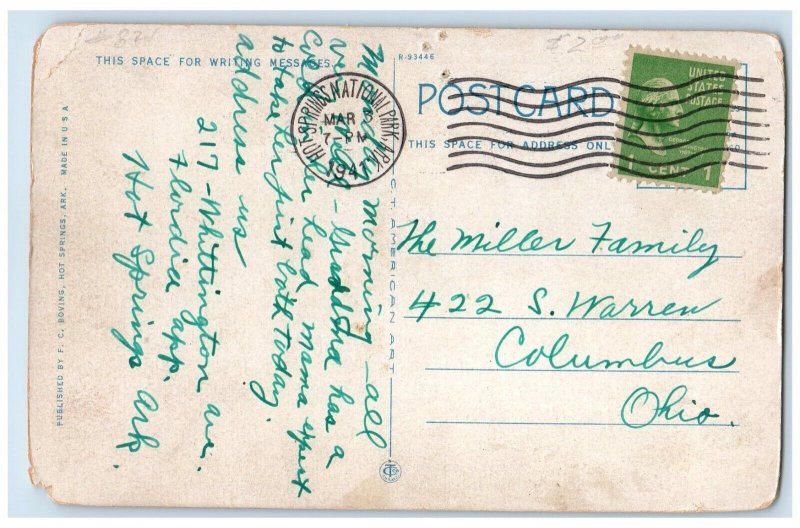 THIS SPACE FOR WRITING MESSAGES
R-93446
POST CARD
THIS SPACE FOR ADDRESS ONLY
UNITED
STATES
POSTAGE
1 CENT 1
HOT SPRINGS NATIONAL PARK, ARK.
MAR 3
7-PM
1941
Monday morning - all
well - Grandma has a
cold in her head mama expect
to take her first bath today.
address us
217-Whittington ave.
Flordia app.
Hot Springs Ark.
The Miller Family
422 S. Warren
Columbus
Ohio.
C.T. AMERICAN ART
PUBLISHED BY F. C. BOVING, HOT SPRINGS, ARK. MADE IN U S A